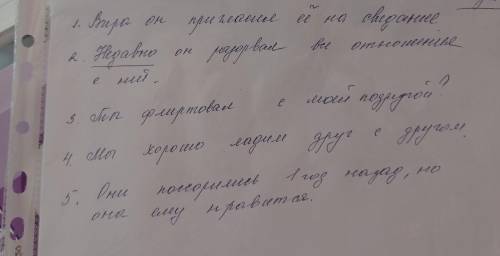 1. Вчера он пригласил её на свидание
2. Недавно он разорвал все отношения
с ней.
3. Ты флиртовал с моей подругой?
4. Мы хорошо ладим друг с другом.
5. Они поссорились 1 год назад, но
она ему нравится.